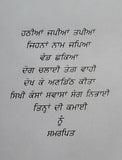 ਹਠੀਆਂ ਜਪੀਆ ਤਪੀਆ
ਜਿਹਨਾਂ ਨਾਮ ਜਪਿਆ
ਵੰਡ ਛਕਿਆ
ਦੇਗ ਚਲਾਈ ਤੇਗ ਵਾਹੀ
ਦੇਖ ਕੇ ਅਣਡਿੱਠ ਕੀਤਾ
ਸਿਖੀ ਕੇਸਾਂ ਸਵਾਸਾਂ ਸੰਗ ਨਿਭਾਈ
ਤਿਨ੍ਹਾਂ ਦੀ ਕਮਾਈ
ਨੂੰ
ਸਮਰਪਿਤ